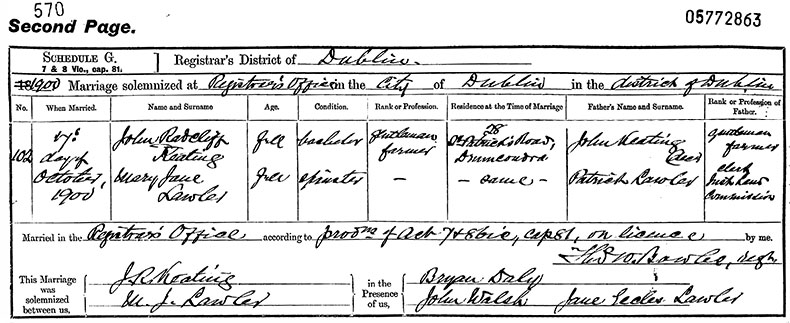 570
Second Page.
05772863
SCHEDULE G.
7 & 8 Vic., cap. 81.
Registrar's District of Dublin.
181900 Marriage solemnized at Registrar's Office in the City of Dublin in the district of Dublin
No. When Married. Name and Surname Age. Condition. Rank or Profession. Residence at the Time of Marriage Father's Name and Surname. Rank or Profession of Father.
102 day of October, 1900
John Radcliff Keating full bachelor gentleman farmer St. Patrick's Road, Drumcondra John Keating gentleman farmer
Mary Jane Lawler full spinster — — same — Patrick Lawler clerk Irish Land Commission
Married in the Registrar's Office according to provns of Act 7 & 8 Vic, cap 81, on licence by me.
Thos W. Bowlee, regr.
This Marriage was solemnized between us,
J. R. Keating
M. J. Lawler
in the Presence of us,
Bryan Daly
John Walsh Jane Eccles Lawler